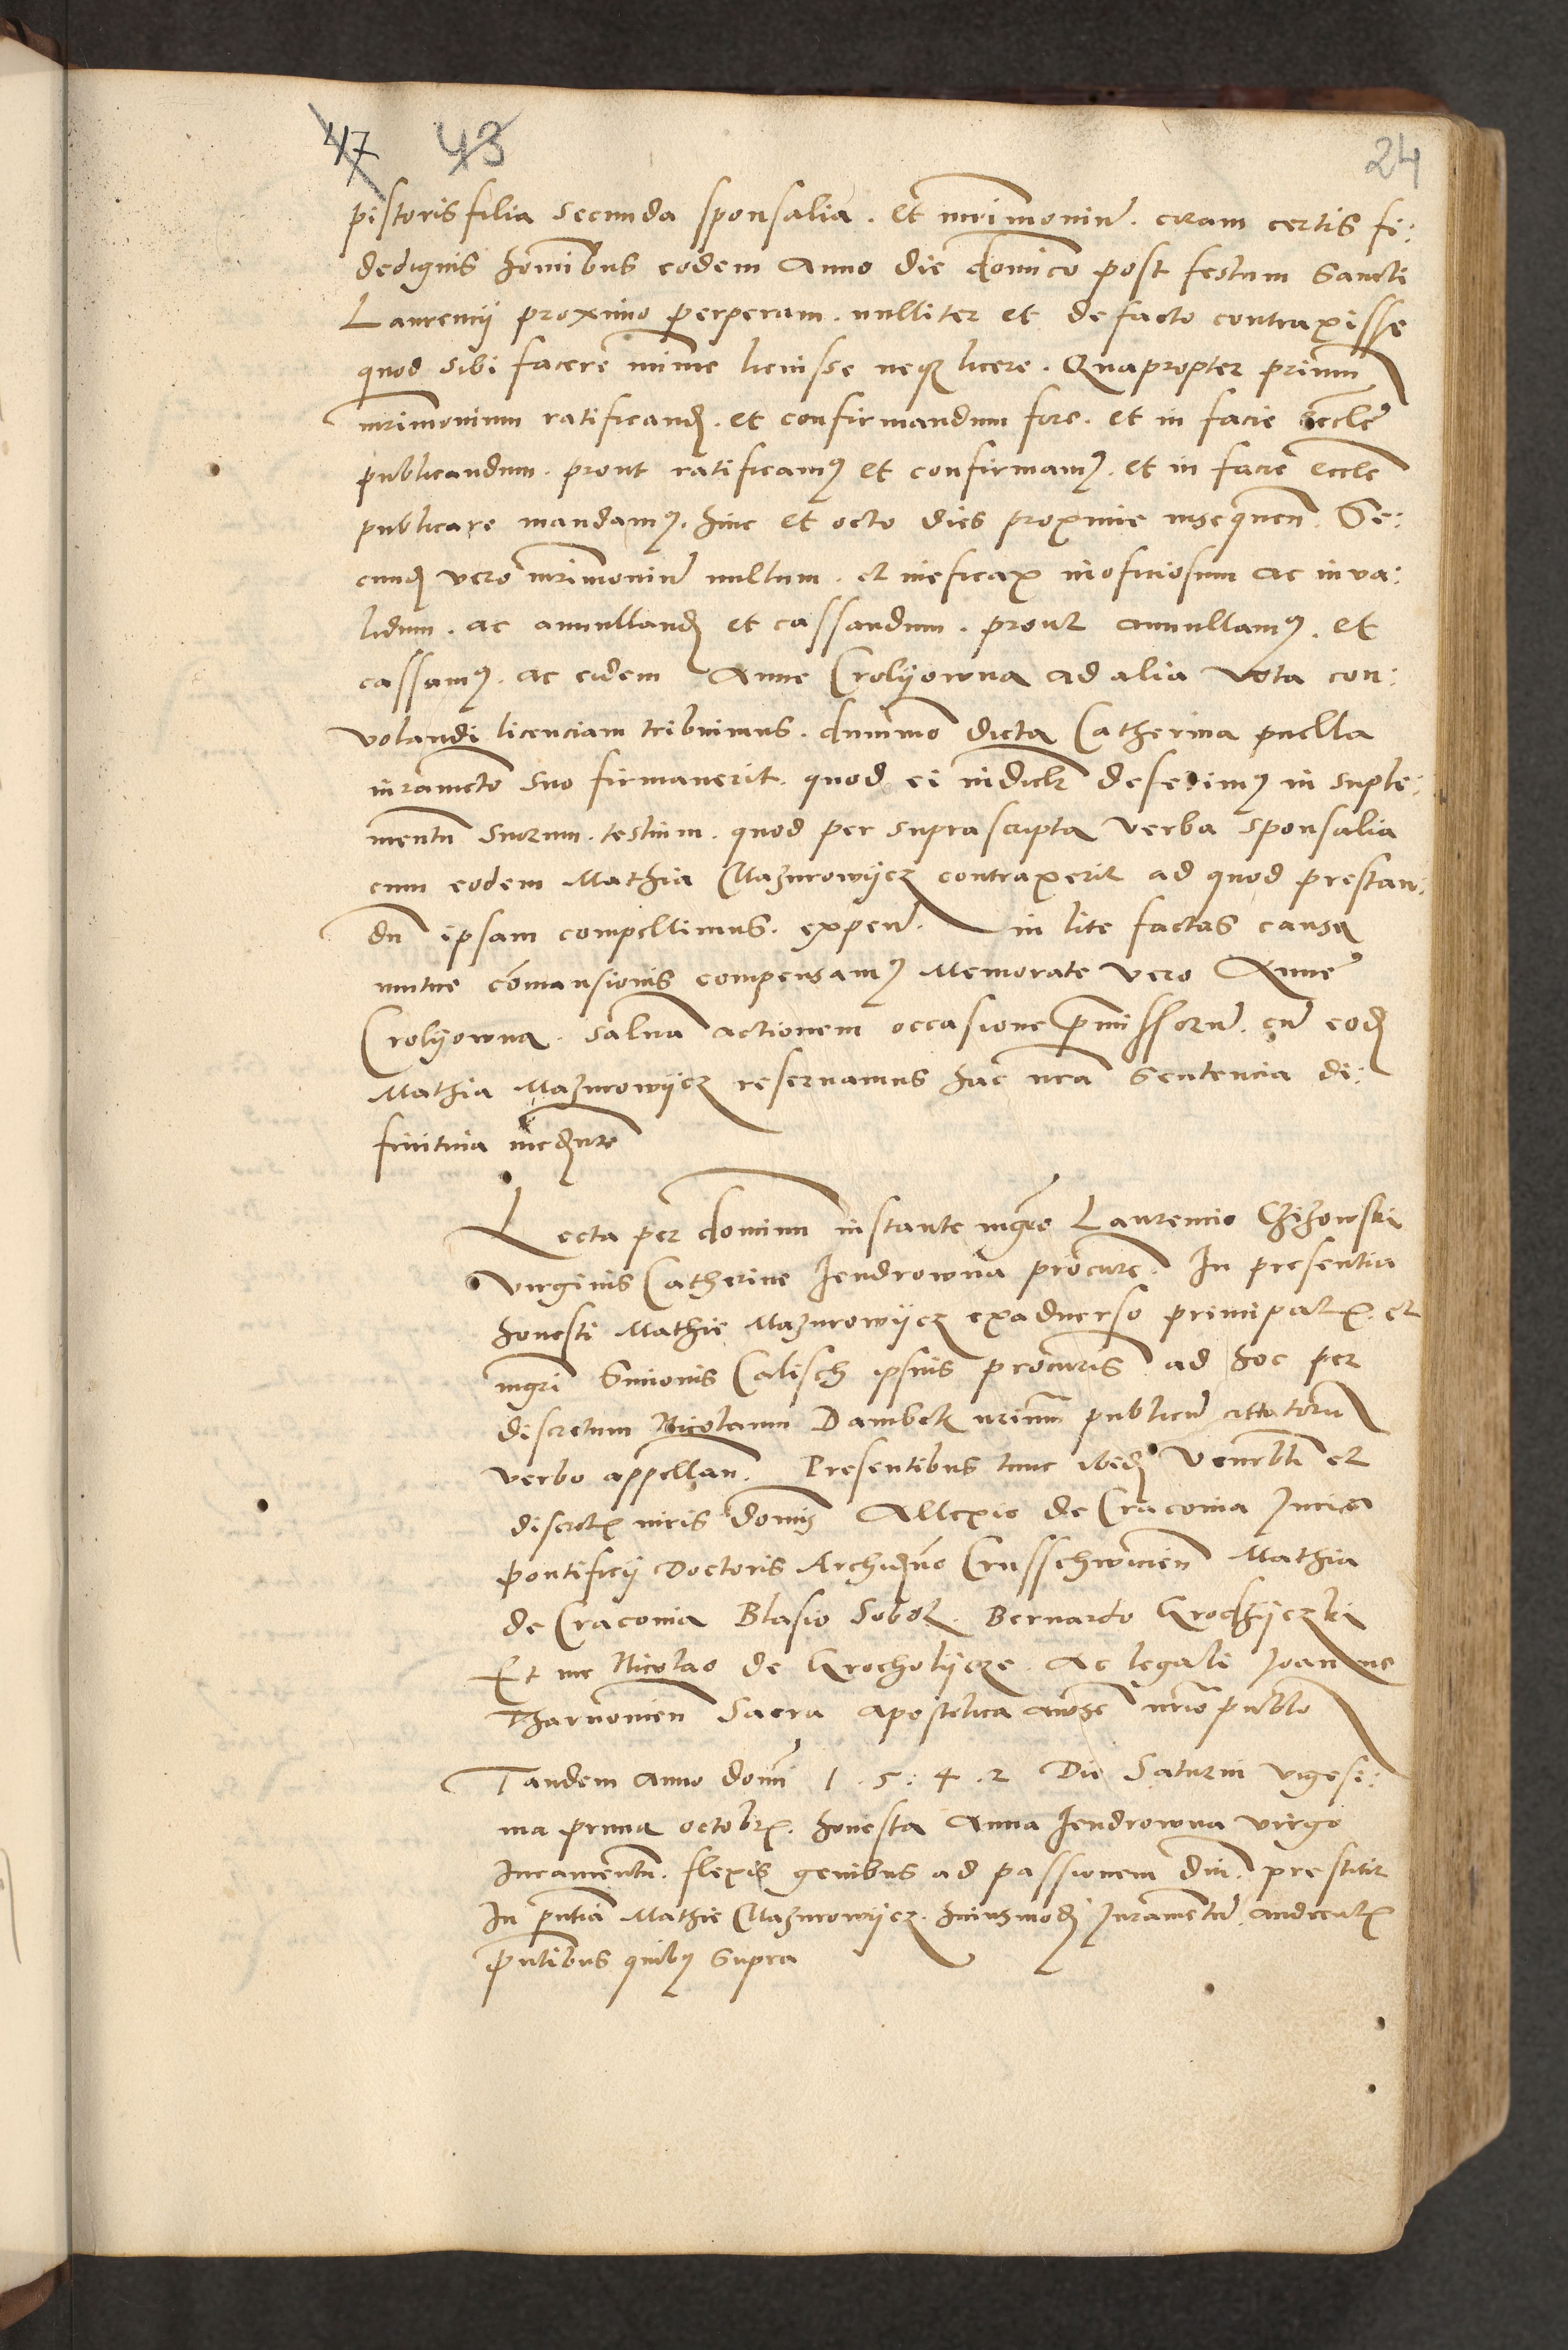 47 43 24
pistoris filia secunda sponsalia. et mrimoniu. coram certis fi:
dedignis homibus eodem Anno die domico post festum Sancti
Laurencij proximo perperam. nulliter et de facto contraxisse
quod sibi facere minime licuisse neq3 licere. Quapropter primum
mrimonium ratificand. et confirmandum fore. et in facie eccle
publicandum. prout ratificam9 et confirmam9. et in facie eccle
publicare mandam9. hinc et octo dies proxime insequen. Se:
cund vero mrimoniu nullum. et ineficax inoficiosum ac inva:
lidum. ac annulland et cassandum. prout annullam9. et
cassam9. ac eidem Anne Crolyowna ad alia vota con:
volandi licenciam tribuimus. dummo dicta Catherina puella
iuramcto suo firmaverit. quod ei deferim9 in suple:
mentu suorum. testium. quod per suprascripta verba sponsalia
cum eodem Mathia Mazurowycz contraxerit ad quod prestan:
du ipsam compellimus. expen. in lite factas causa
mutue comansionis compensam9 Memorate vero Anne
Crolyowna. salva actionem occasione pmissoru. cu eod
Mathia Mazurowycz reservamus hac nra Sentencia di:
finitiva mediante
Lecta per dominu instante mgro Laurencio Chizowski
virginis Catherine Jendrowna procure. In presentia
honesti Mathie Mazurowycz exadverso principal. et
mgri Simonis Calisch ipsius procuris ad hoc per
discretum Nicolaum Dambek nrium publicu cittatoru
verbo appellan. Presentibus tunc ibid Venerbli et
discret viris domis Allexio de Cracovia Juris
pontificij Doctoris Archidno Crusschwicien Mathia
de Cracovia Blasio Sobol. Bernardo Grochyczki
Et me Nicolao de Grocholycze. Ac legali Joanne
Tharnovien Sacra Apostolica aucte nrio publo
Tandem Anno domi 1.5.4.2 Die Saturni vigesi:
ma prima octobr. honesta Anna Jendrowna virgo
Iuramentu. flexis genibus ad passionem dni. prestitit
In pntia Mathie Mazurowycz. huiusmodi Iuramentu audient
pntibus quib9 supra